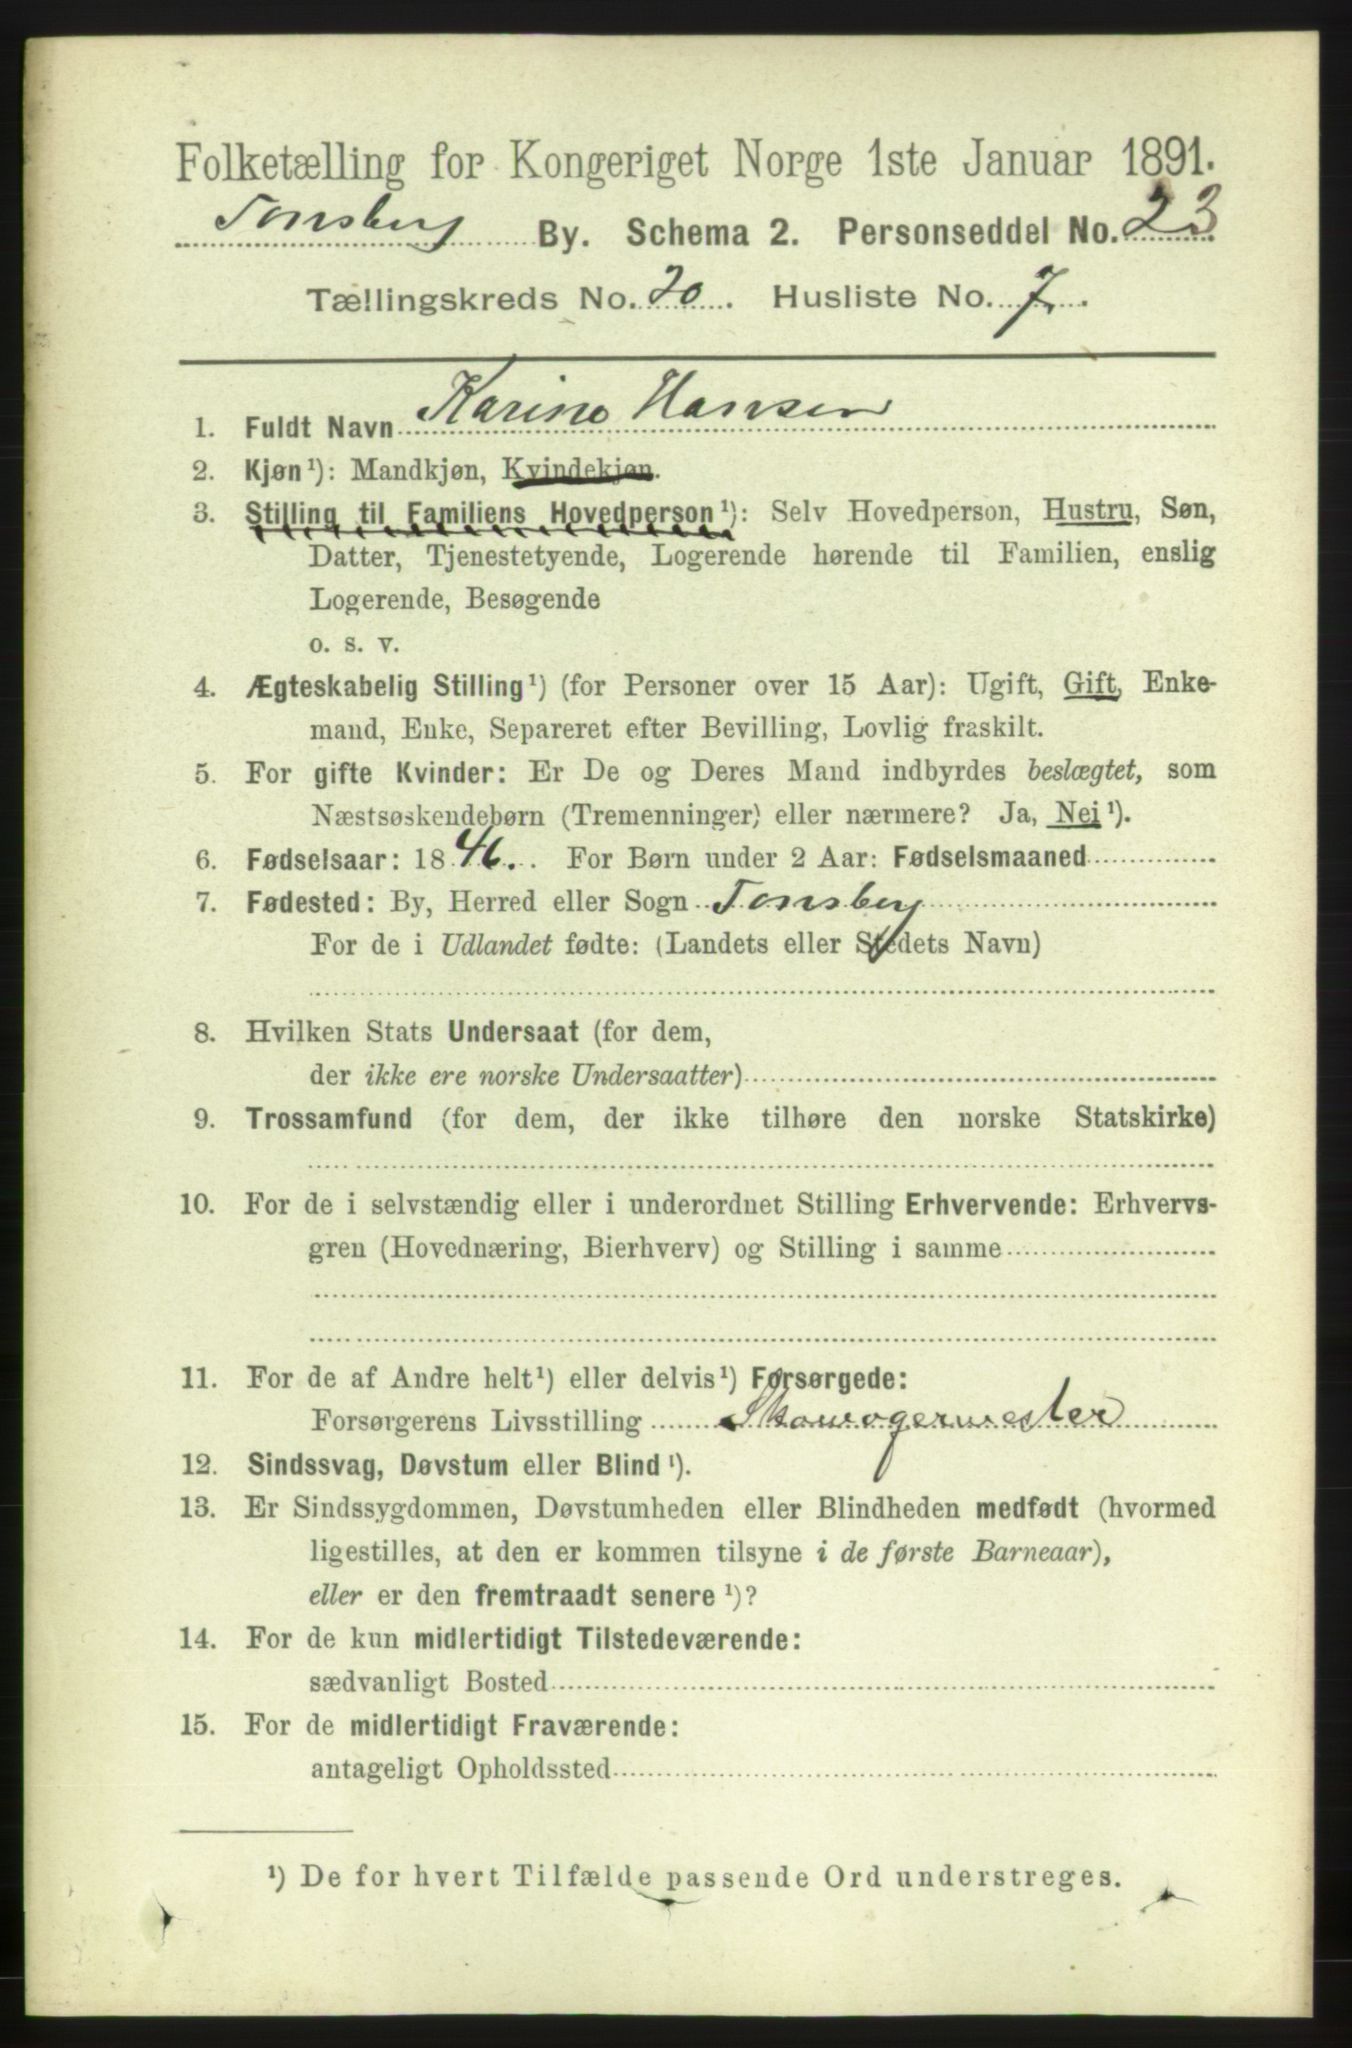 Folketælling for Kongeriget Norge 1ste Januar 1891.
Tønsberg By. Schema 2. Personseddel No. 23
Tællingskreds No. 20. Husliste No. 7.
1. Fuldt Navn Karine Hansen
2. Kjøn¹): Mandkjøn, Kvindekjøn.
3. Stilling til Familiens Hovedperson¹): Selv Hovedperson, Hustru, Søn,
Datter, Tjenestetyende, Logerende hørende til Familien, enslig
Logerende, Besøgende
o. s. v.
4. Ægteskabelig Stilling¹) (for Personer over 15 Aar): Ugift, Gift, Enke-
mand, Enke, Separeret efter Bevilling, Lovlig fraskilt.
5. For gifte Kvinder: Er De og Deres Mand indbyrdes beslægtet, som
Næstsøskendebørn (Tremenninger) eller nærmere? Ja, Nei¹).
6. Fødselsaar: 1846. For Børn under 2 Aar: Fødselsmaaned
7. Fødested: By, Herred eller Sogn Tønsberg
For de i Udlandet fødte: (Landets eller Stedets Navn)
8. Hvilken Stats Undersaat (for dem,
der ikke ere norske Undersaatter)
9. Trossamfund (for dem, der ikke tilhøre den norske Statskirke)
10. For de i selvstændig eller i underordnet Stilling Erhvervende: Erhvervs-
gren (Hovednæring, Bierhverv) og Stilling i samme
11. For de af Andre helt¹) eller delvis¹) Forsørgede:
Forsørgerens Livsstilling Skomagermester
12. Sindssvag, Døvstum eller Blind¹).
13. Er Sindssygdommen, Døvstumheden eller Blindheden medfødt (hvormed
ligestilles, at den er kommen tilsyne i de første Barneaar),
eller er den fremtraadt senere¹)?
14. For de kun midlertidigt Tilstedeværende:
sædvanligt Bosted
15. For de midlertidigt Fraværende:
antageligt Opholdssted
¹) De for hvert Tilfælde passende Ord understreges.